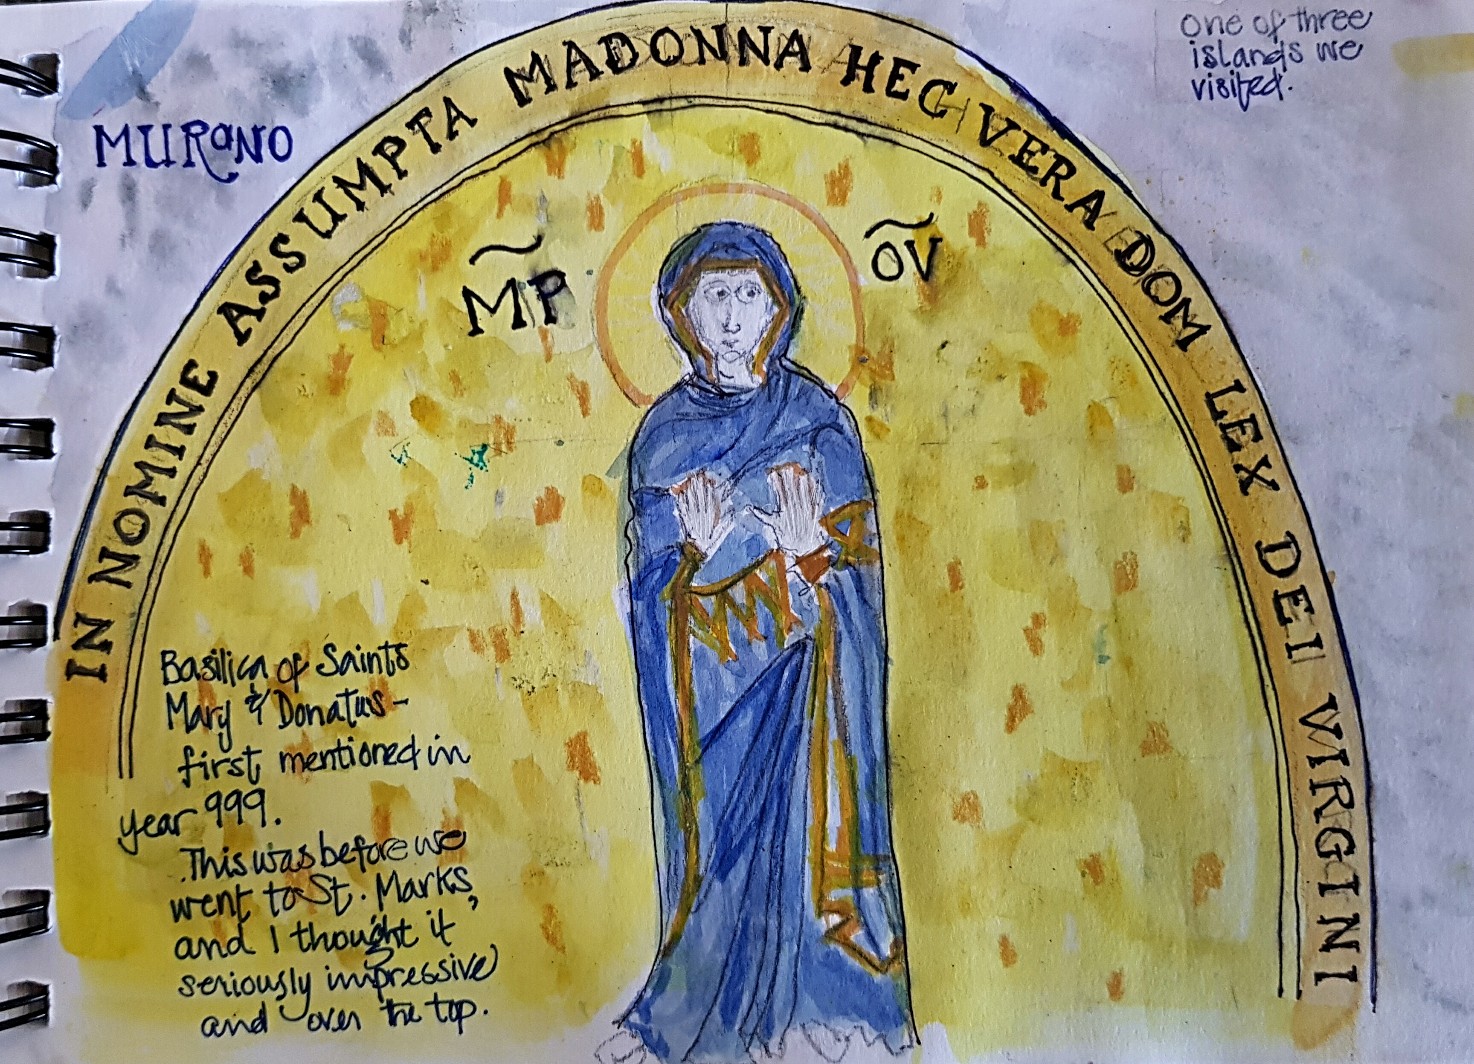 one of three
islands we
visited.
MURaNO
IN NOMINE ASSUMPTA MADONNA HEC VERA DOM LEX DEI VIRGINI
MP
OV
Basilica of Saints
Mary & Donatus -
first mentioned in
year 999.
This was before we
went to St. Marks,
and I thought it
seriously impressive
and over the top.